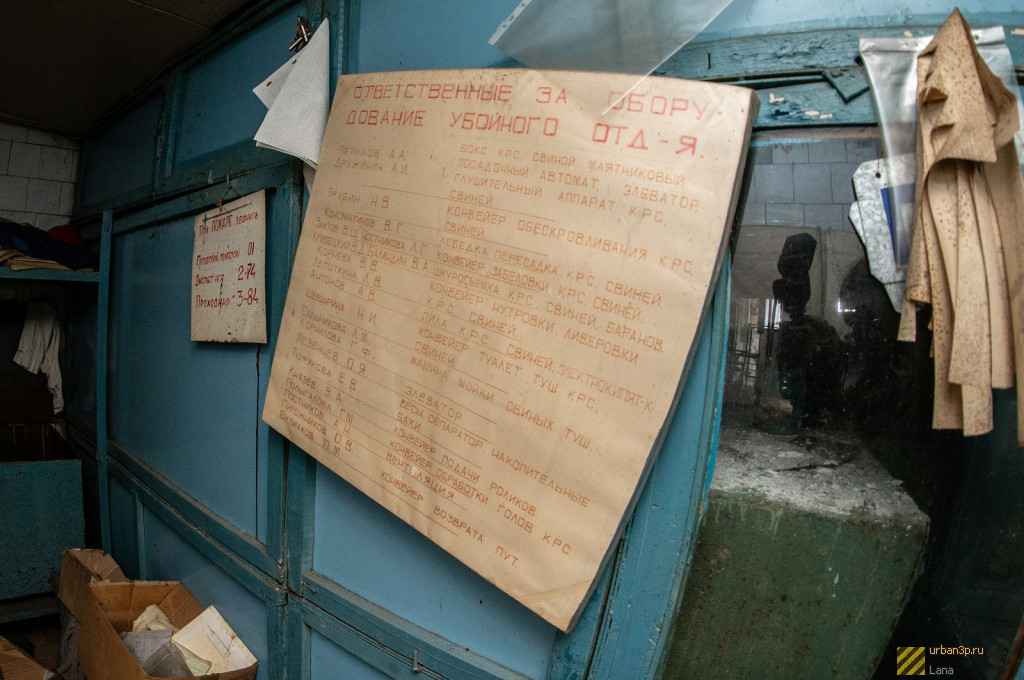 ОТВЕТСТВЕННЫЕ ЗА ОБОРУ-
ДОВАНИЕ УБОЙНОГО ОТД-Я.
ПЕТУХОВ А.А. БОКС КРС СВИНОЙ МАЯТНИКОВЫЙ
ДРУЖИНИН А.И. ПОСАДОЧНЫЙ АВТОМАТ, ЭЛЕВАТОР,
ГЛУШИТЕЛЬНЫЙ АППАРАТ КРС,
СВИНЕЙ.
ТРУБИН Н.В. КОНВЕЙЕР ОБЕСКРОВЛИВАНИЯ КРС,
СВИНЕЙ.
КОНСТАНТИНОВ В.Г. ЛЕБЕДКА ПЕРЕСАДКА КРС, СВИНЕЙ.
КОНВЕЙЕР ЗАБЕЛОВКИ КРС, СВИНЕЙ.
КРИВЕЦКИЙ В.Д. БАЛАНДИН В.А. ШКУРОСЪЕМКА КРС, СВИНЕЙ, БАРАНОВ.
КОРНЕВА В.В. КОНВЕЙЕР НУТРОВКИ, ЛИВЕРОВКИ
КРС, СВИНЕЙ.
АНТОНОВ А.В. ПИЛА КРС, СВИНЕЙ, ЭЛЕКТРОКИПЯТ-К.
Н.И. КОНВЕЙЕР ТУАЛЕТ ТУШ КРС,
СВИНЕЙ.
Л.М. МАШИНА МОЙКИ СВИНЫХ ТУШ.
КОРНИЛОВА Ф.
О.Я. ЭЛЕВАТОР
Е.В. ВЕСЫ, СЕПАРАТОР, НАКОПИТЕЛЬНЫЕ
БАКИ.
КНЯЗЕВ В.А. КОНВЕЙЕР ПОДАЧИ РОЛИКОВ
Г.М. КОНВЕЙЕР ОБРАБОТКИ ГОЛОВ КРС.
ПОСТНИКОВ А.Н. ВЕНТИЛЯЦИЯ
ПИРОЖНИКОВ О.В. КОНВЕЙЕР ВОЗВРАТА ПУТ.
П.М.
При ПОЖАРЕ звонить
Пожарная охрана 01
Диспетчер 2-74
Проходная 3-84
urban3p.ru
Lana